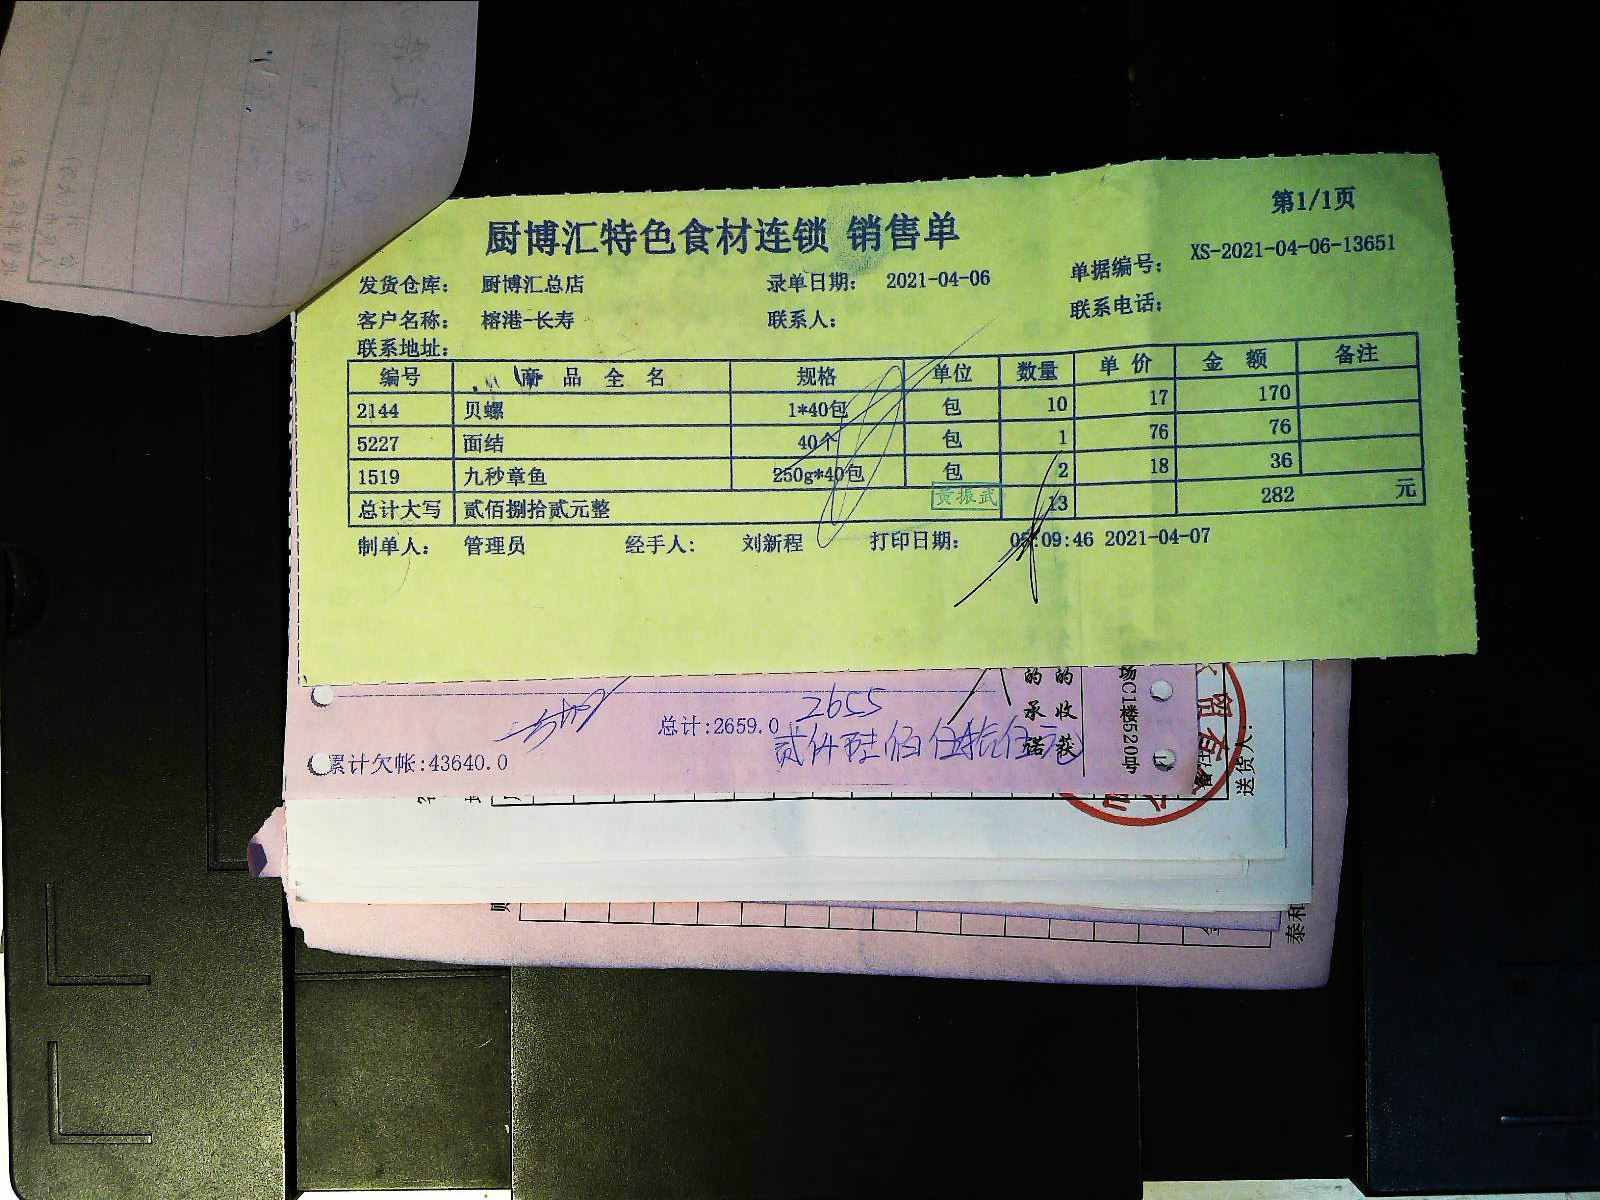 第1/1页
厨博汇特色食材连锁 销售单
发货仓库： 厨博汇总店 录单日期： 2021-04-06 单据编号： XS-2021-04-06-13651
客户名称： 榕港-长寿 联系人： 联系电话：
联系地址：
编号 商 品 全 名 规格 单位 数量 单 价 金 额 备注
2144 贝螺 1*40包 包 10 17 170
5227 面结 40个 包 1 76 76
1519 九秒章鱼 250g*40包 包 2 18 36
总计大写 贰佰捌拾贰元整 13 282 元
黄振武
制单人： 管理员 经手人： 刘新程 打印日期： 05:09:46 2021-04-07
总计:2659.0 2655
累计欠帐:43640.0
的承诺
的收获
场C1楼5520号
送货人：
泰和